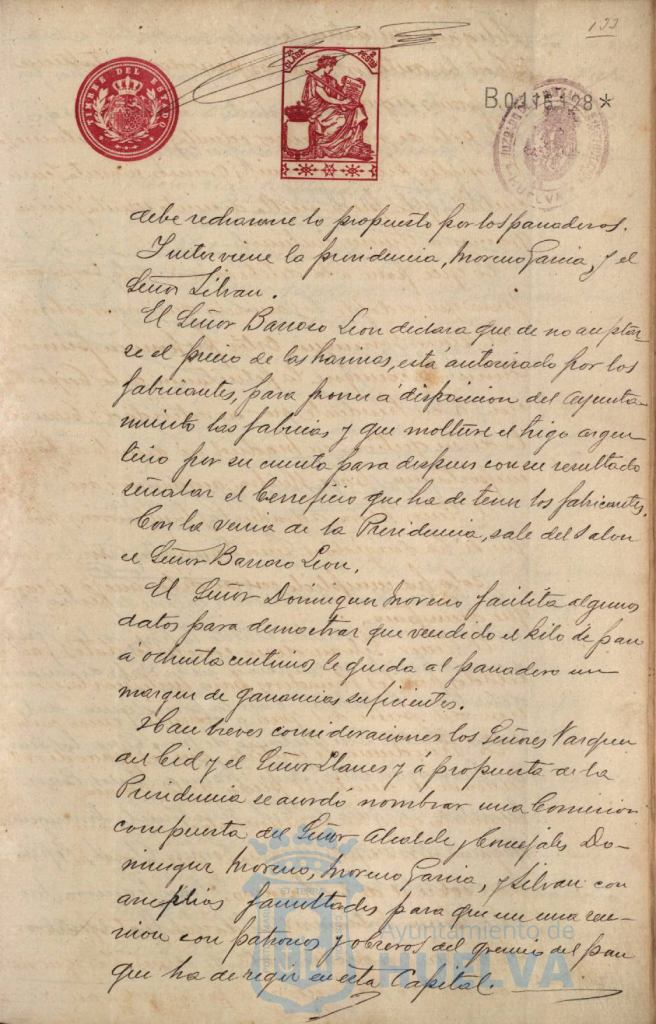 133
TIMBRE DEL ESTADO
2ª CLASE PESETAS
B.0,116,128*
HUELVA
debe rechazarse lo propuesto por los panaderos.
Interviene la presidencia, Moreno Garcia, y el
Señor Silvan.
El Señor Barroso Leon declara que de no aceptar
se el precio de las harinas, está autorizado por los
fabricantes, para poner á disposicion del Ayunta-
miento las fabricas y que molture el trigo argen
tino por su cuenta para despues con su resultado
señalar el beneficio que ha de tener los fabricantes.
Con la venia de la Presidencia, sale del Salon
el Señor Barroso Leon.
El Señor Dominguez Moreno facilita algunos
datos para demostrar que vendido el kilo de pan
á ochenta centimos le queda al panadero un
margen de ganancias suficientes.
Hacen breves consideraciones los Señores Vazquez
del Cid y el Señor Llanes y á propuesta de la
Presidencia se acordó nombrar una Comision
compuesta del Señor Alcalde y Concejales Do-
minguez Moreno, Moreno Garcia, y Silvan con
amplias facultades para que en una reu-
nion con patronos y obreros del gremio del pan
que ha de regir en esta Capital.
Ayuntamiento de
HUELVA